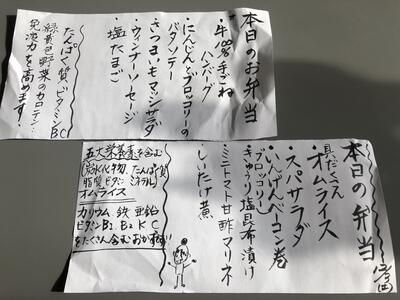 本日のお弁当
・牛100%手ごね
ハンバーグ
・にんじんとブロッコリーの
バタソテー
・さつまいもマッシュサラダ
・ウィンナーソーセージ
・塩たまご
たんぱく質・ビタミンBC
緑黄色野菜のカロテン…
免疫力を高めます!
本日の弁当
12/3(土)
具だくさん
オムライス
・スパサラダ
・いんげんベーコン巻
・ブロッコリー
・きゅうり塩昆布漬け
・ミニトマト甘酢マリネ
・しいたけ煮
五大栄養素を含む
(炭水化物 たんぱく質
脂質 ビタミン ミネラル)
オムライス
カリウム 鉄 亜鉛
ビタミンB1、B2 K C
をたくさん含むおかず